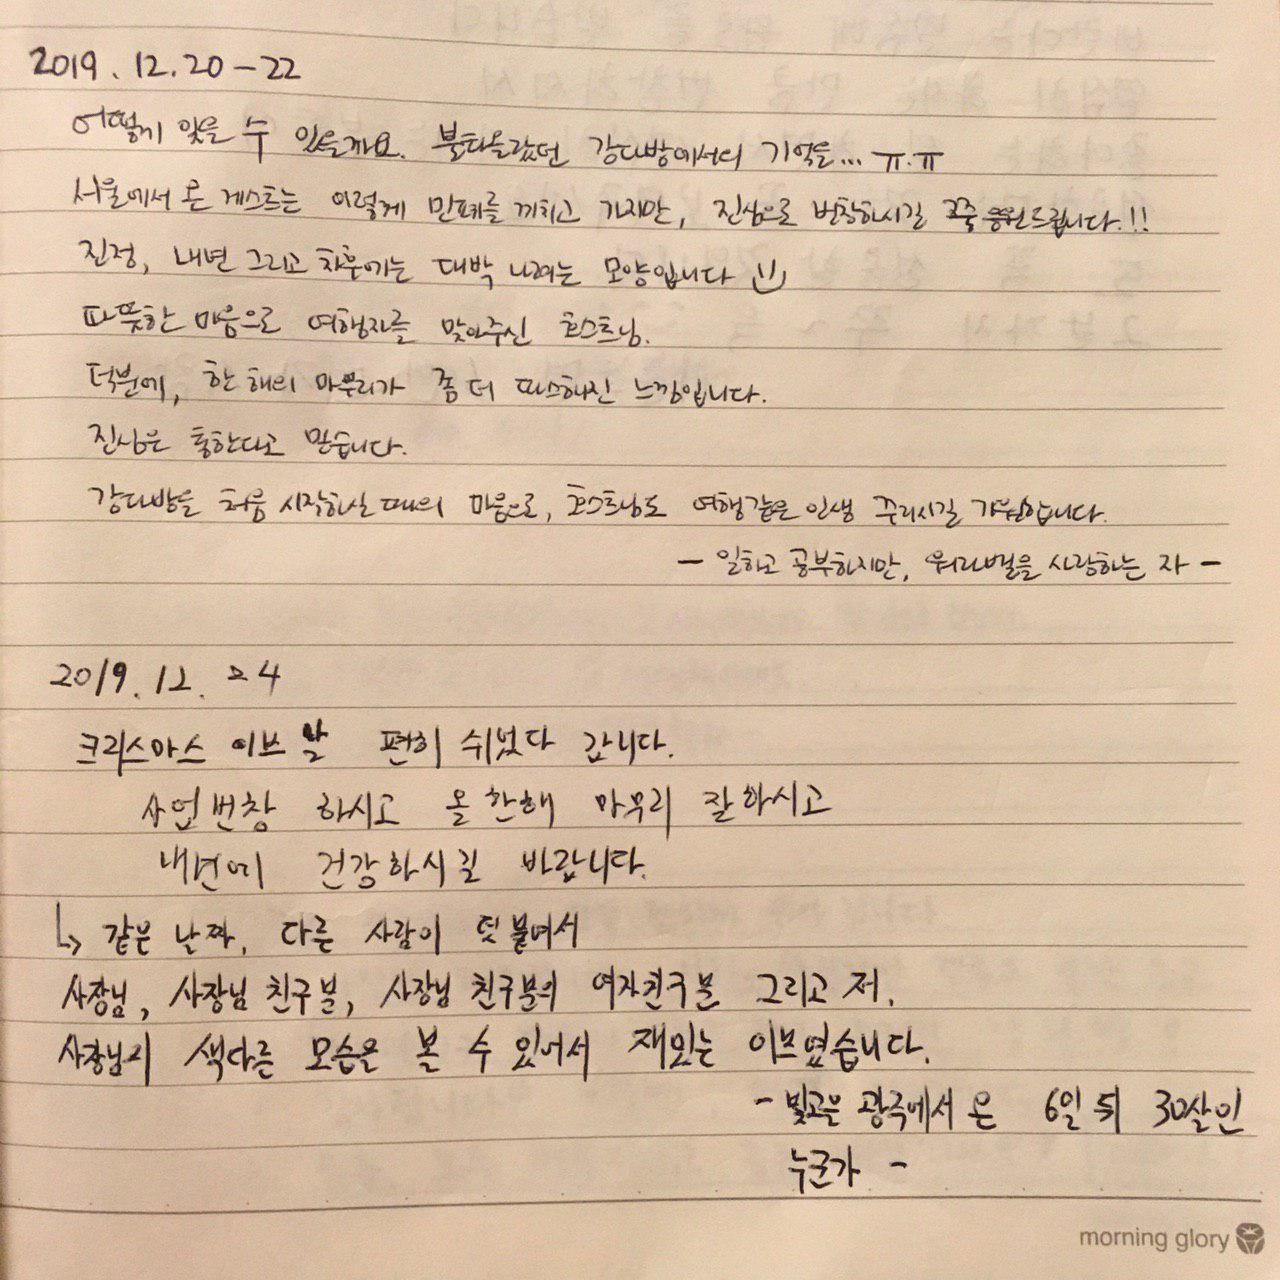 2019.12.20-22
어떻게 잊을 수 있을까요. 불타올랐던 강다방에서의 기억을... ㅠ.ㅠ
서울에서 온 게스트는 이렇게 민폐를 끼치고 가지만, 진심으로 번창하시길 쭉 응원드립니다.!!
진정, 내년 그리고 차후에는 대박 나려는 모양입니다
따뜻한 마음으로 여행자를 맞아주신 호스트님.
덕분에, 한 해의 마무리가 좀 더 따스해진 느낌입니다.
진심은 통한다고 믿습니다.
강다방을 처음 시작하실 때의 마음으로, 호스트님도 여행같은 인생 꾸리시길 기원합니다.
- 일하고 공부하지만, 워라벨을 사랑하는 자 -
2019.12.24
크리스마스 이브날 편히 쉬었다 갑니다.
사업번창 하시고 올 한해 마무리 잘하시고
내년에 건강하시길 바랍니다.
↳ 같은 날짜, 다른 사람이 덧붙여서
사장님, 사장님 친구분, 사장님 친구분의 여자친구분 그리고 저.
사장님의 색다른 모습을 본 수 있어서 재밌는 이브였습니다.
- 빛고을 광주에서 온 6일 뒤 30살인
누군가 -
morning glory